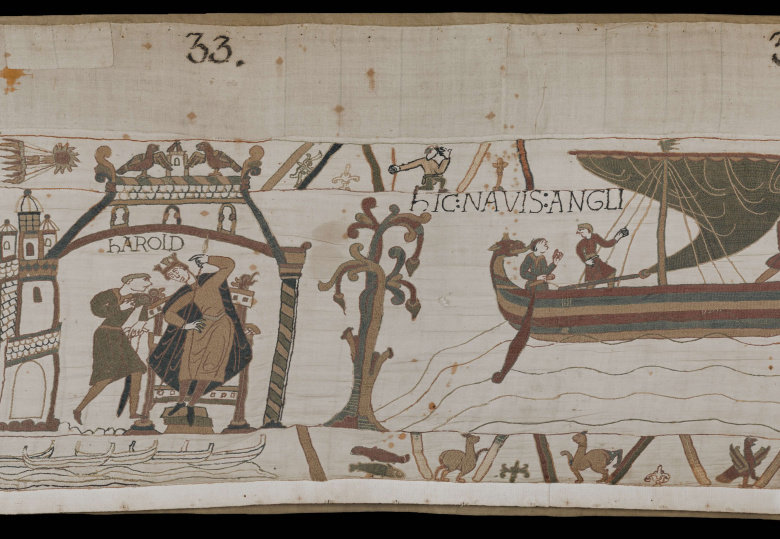 33.
3
HIC:NAVIS:ANGLI
HAROLD